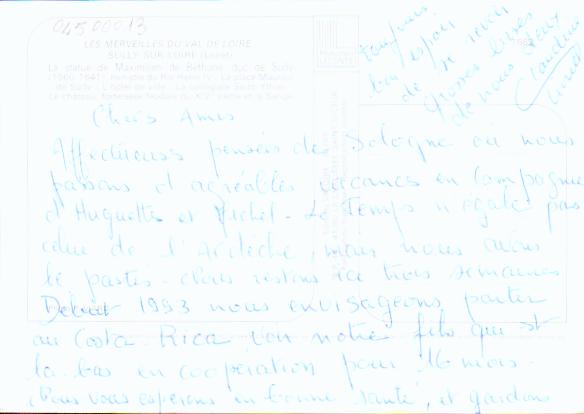 04500013
LES MERVEILLES DU VAL DE LOIRE
SULLY-SUR-LOIRE (Loiret)
La statue de Maximilien de Béthune, duc de Sully
(1560-1641), ministre du Roi Henri IV - La place Maurice
de Sully - L'hôtel de ville - La collégiale Saint-Ythier
Le château, forteresse féodale du XIVe siècle et la Sange
Chers Amis
Affectueuses pensées de Sologne où nous
passons d'agréables vacances en compagnie
d'Huguette et Michel - Le temps n'égale pas
celui de l'Ardèche, mais nous avons
le pastis - Nous restons ici trois semaines
Début 1993 nous envisageons partir
au Costa Rica voir notre fils qui est
la bas en coopération pour 16 mois.
Nous vous espérons en bonne santé, et gardons
toujours
bon espoir
de se revoir
Grosses bises
de nous deux
Claudine